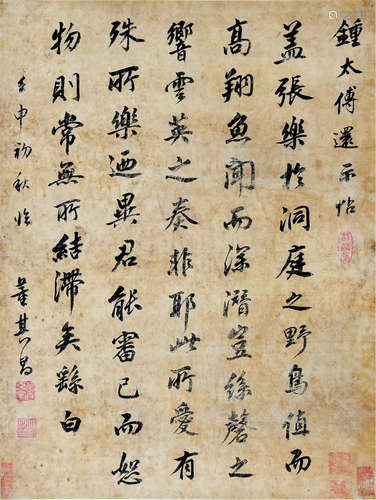 鍾太傅還示帖
蓋張樂於洞庭之野鳥值而
高翔魚聞而深潛豈絲磬之
響雲英之奏非耶此所愛有
殊所樂迺異君能審己而恕
物則常無所結滯矣繇白
壬申初秋臨
董其昌